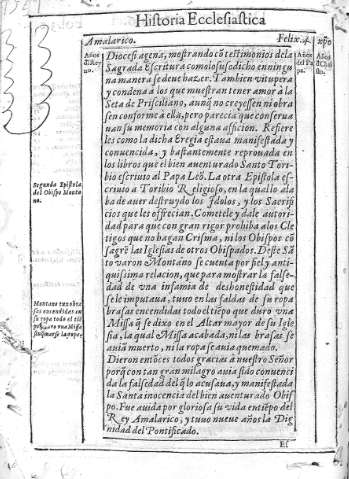 Historia Ecclesiastica
Amalarico.
Felix.4.
xpo
Años
del Rey
no.
Años
del Pa
pa.
Años
d Chri
sto.
Diocesi agena, mostrando cõ testimonios dela
Sagrada Escritura como lo suso dicho en ningu
na manera se deue hazer. Tambien vitupera
y condena à los que muestran tener amòr à la
Seta de Prisciliano, aunq̃ no creyessen ni obra
sen conforme à ella, pero parecia que conserua
uan su memoria con alguna aficion. Refiere
les como la dicha Eregia estaua manifestada y
conuencida, y bastantemente reprouada en
los libros que el bien auenturado Santo Tori-
bio escriuio al Papa Leõ. La otra Epistola es-
criuio a Toribio Religioso, en la qual lo ala
ba de auer destruydo los Idolos, y los Sacrifi
cios que les offrecian. Cometele y dale autori-
dad para que con gran rigor prohiba alos Cle
rigos que no hagan Crisma, ni los Obispos cõ
sagrẽ las Iglesias de otros Obispados. Deste Sã
to varon Montano se cuenta por fiel y anti-
quissima relacion, que para mostrar la false-
dad de vna infamia de deshonestidad que
se le imputaua, tuuo en las faldas de su ropa
brasas encendidas todo el tiẽpo que duro vna
Missa q̃ se dixo en el Altar mayor de su Igle
sia, la qual Missa acabada, ni las brasas se
auiã muerto, ni la ropa se auia quemado.
Dieron entõces todos gracias à nuestro Señor
porq̃ con tan gran milagro auia sido conuenci
da la falsedad del q̃ lo acusaua, y manifestada
la Santa inocencia del bien auenturado Obis
po. Fue auida por gloriosa su vida en tiẽpo del
Rey Amalarico, y tuuo nueue años la Dig
nidad del Pontificado.
Segunda Epistola
del Obispo Monta
no.
Montano tuuo bra
sas encendidas en
su ropa todo el tiẽ
po